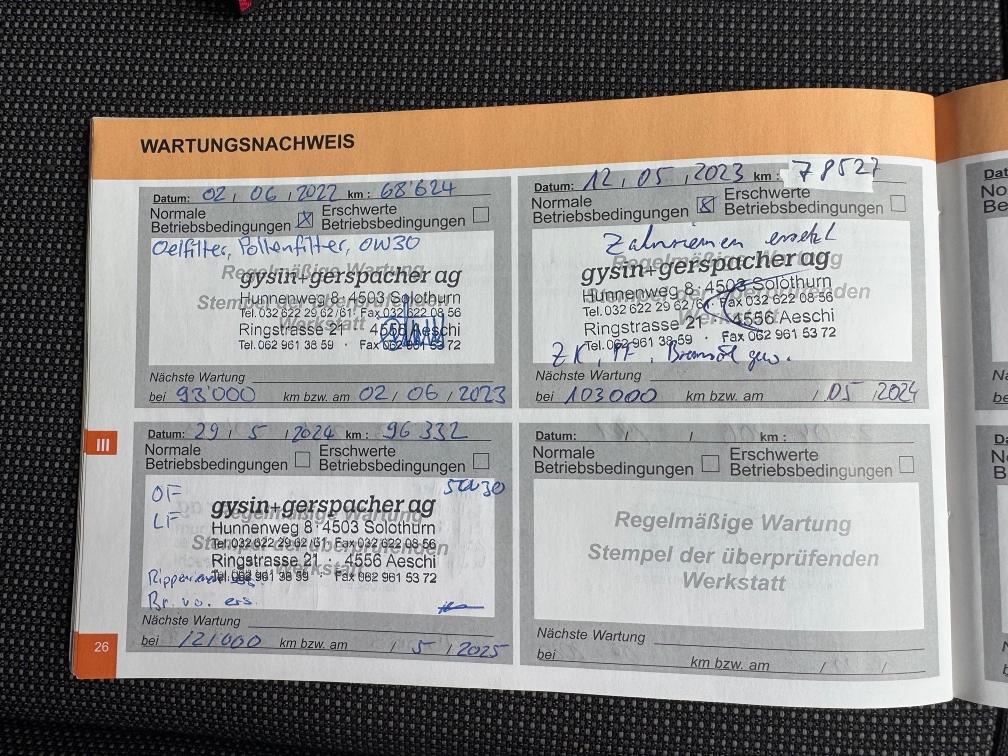 WARTUNGSNACHWEIS
Datum: 02 , 06 , 2022 km : 68'624
Normale Erschwerte
Betriebsbedingungen ☒ Betriebsbedingungen ☐
Oelfilter, Pollenfilter, 0W30
Regelmäßige Wartung
gysin+gerspacher ag
Hunnenweg 8 · 4503 Solothurn
Stempel der überprüfenden
Tel. 032 622 29 62 / 61 · Fax 032 622 08 56
Werkstatt
Ringstrasse 21 · 4556 Aeschi
Tel. 062 961 38 59 · Fax 062 961 53 72
Nächste Wartung
bei 93'000 km bzw. am 02 / 06 / 2023
Datum: 12 , 05 , 2023 km : 78527
Normale Erschwerte
Betriebsbedingungen ☒ Betriebsbedingungen ☐
Zahnriemen ersetzt
Regelmäßige Wartung
gysin+gerspacher ag
Hunnenweg 8 · 4503 Solothurn
Stempel der überprüfenden
Tel. 032 622 29 62 / 61 · Fax 032 622 08 56
Werkstatt
Ringstrasse 21 · 4556 Aeschi
Tel. 062 961 38 59 · Fax 062 961 53 72
ZK, PF, Bremsöl gew.
Nächste Wartung
bei 103000 km bzw. am / 05 / 2024
III
Datum: 29 / 5 / 2024 km : 96 332
Normale Erschwerte
Betriebsbedingungen ☐ Betriebsbedingungen ☐
ÖF 5W30
LF
gysin+gerspacher ag
Regelmäßige Wartung
Hunnenweg 8 · 4503 Solothurn
Stempel der überprüfenden
Tel. 032 622 29 62 / 61 · Fax 032 622 08 56
Werkstatt
Ringstrasse 21 · 4556 Aeschi
Tel. 062 961 38 59 · Fax 062 961 53 72
Br. vo. ers.
Nächste Wartung
bei 121000 km bzw. am / 5 / 2025
Datum: / / km :
Normale Erschwerte
Betriebsbedingungen ☐ Betriebsbedingungen ☐
Regelmäßige Wartung
Stempel der überprüfenden
Werkstatt
Nächste Wartung
bei km bzw. am / /
26